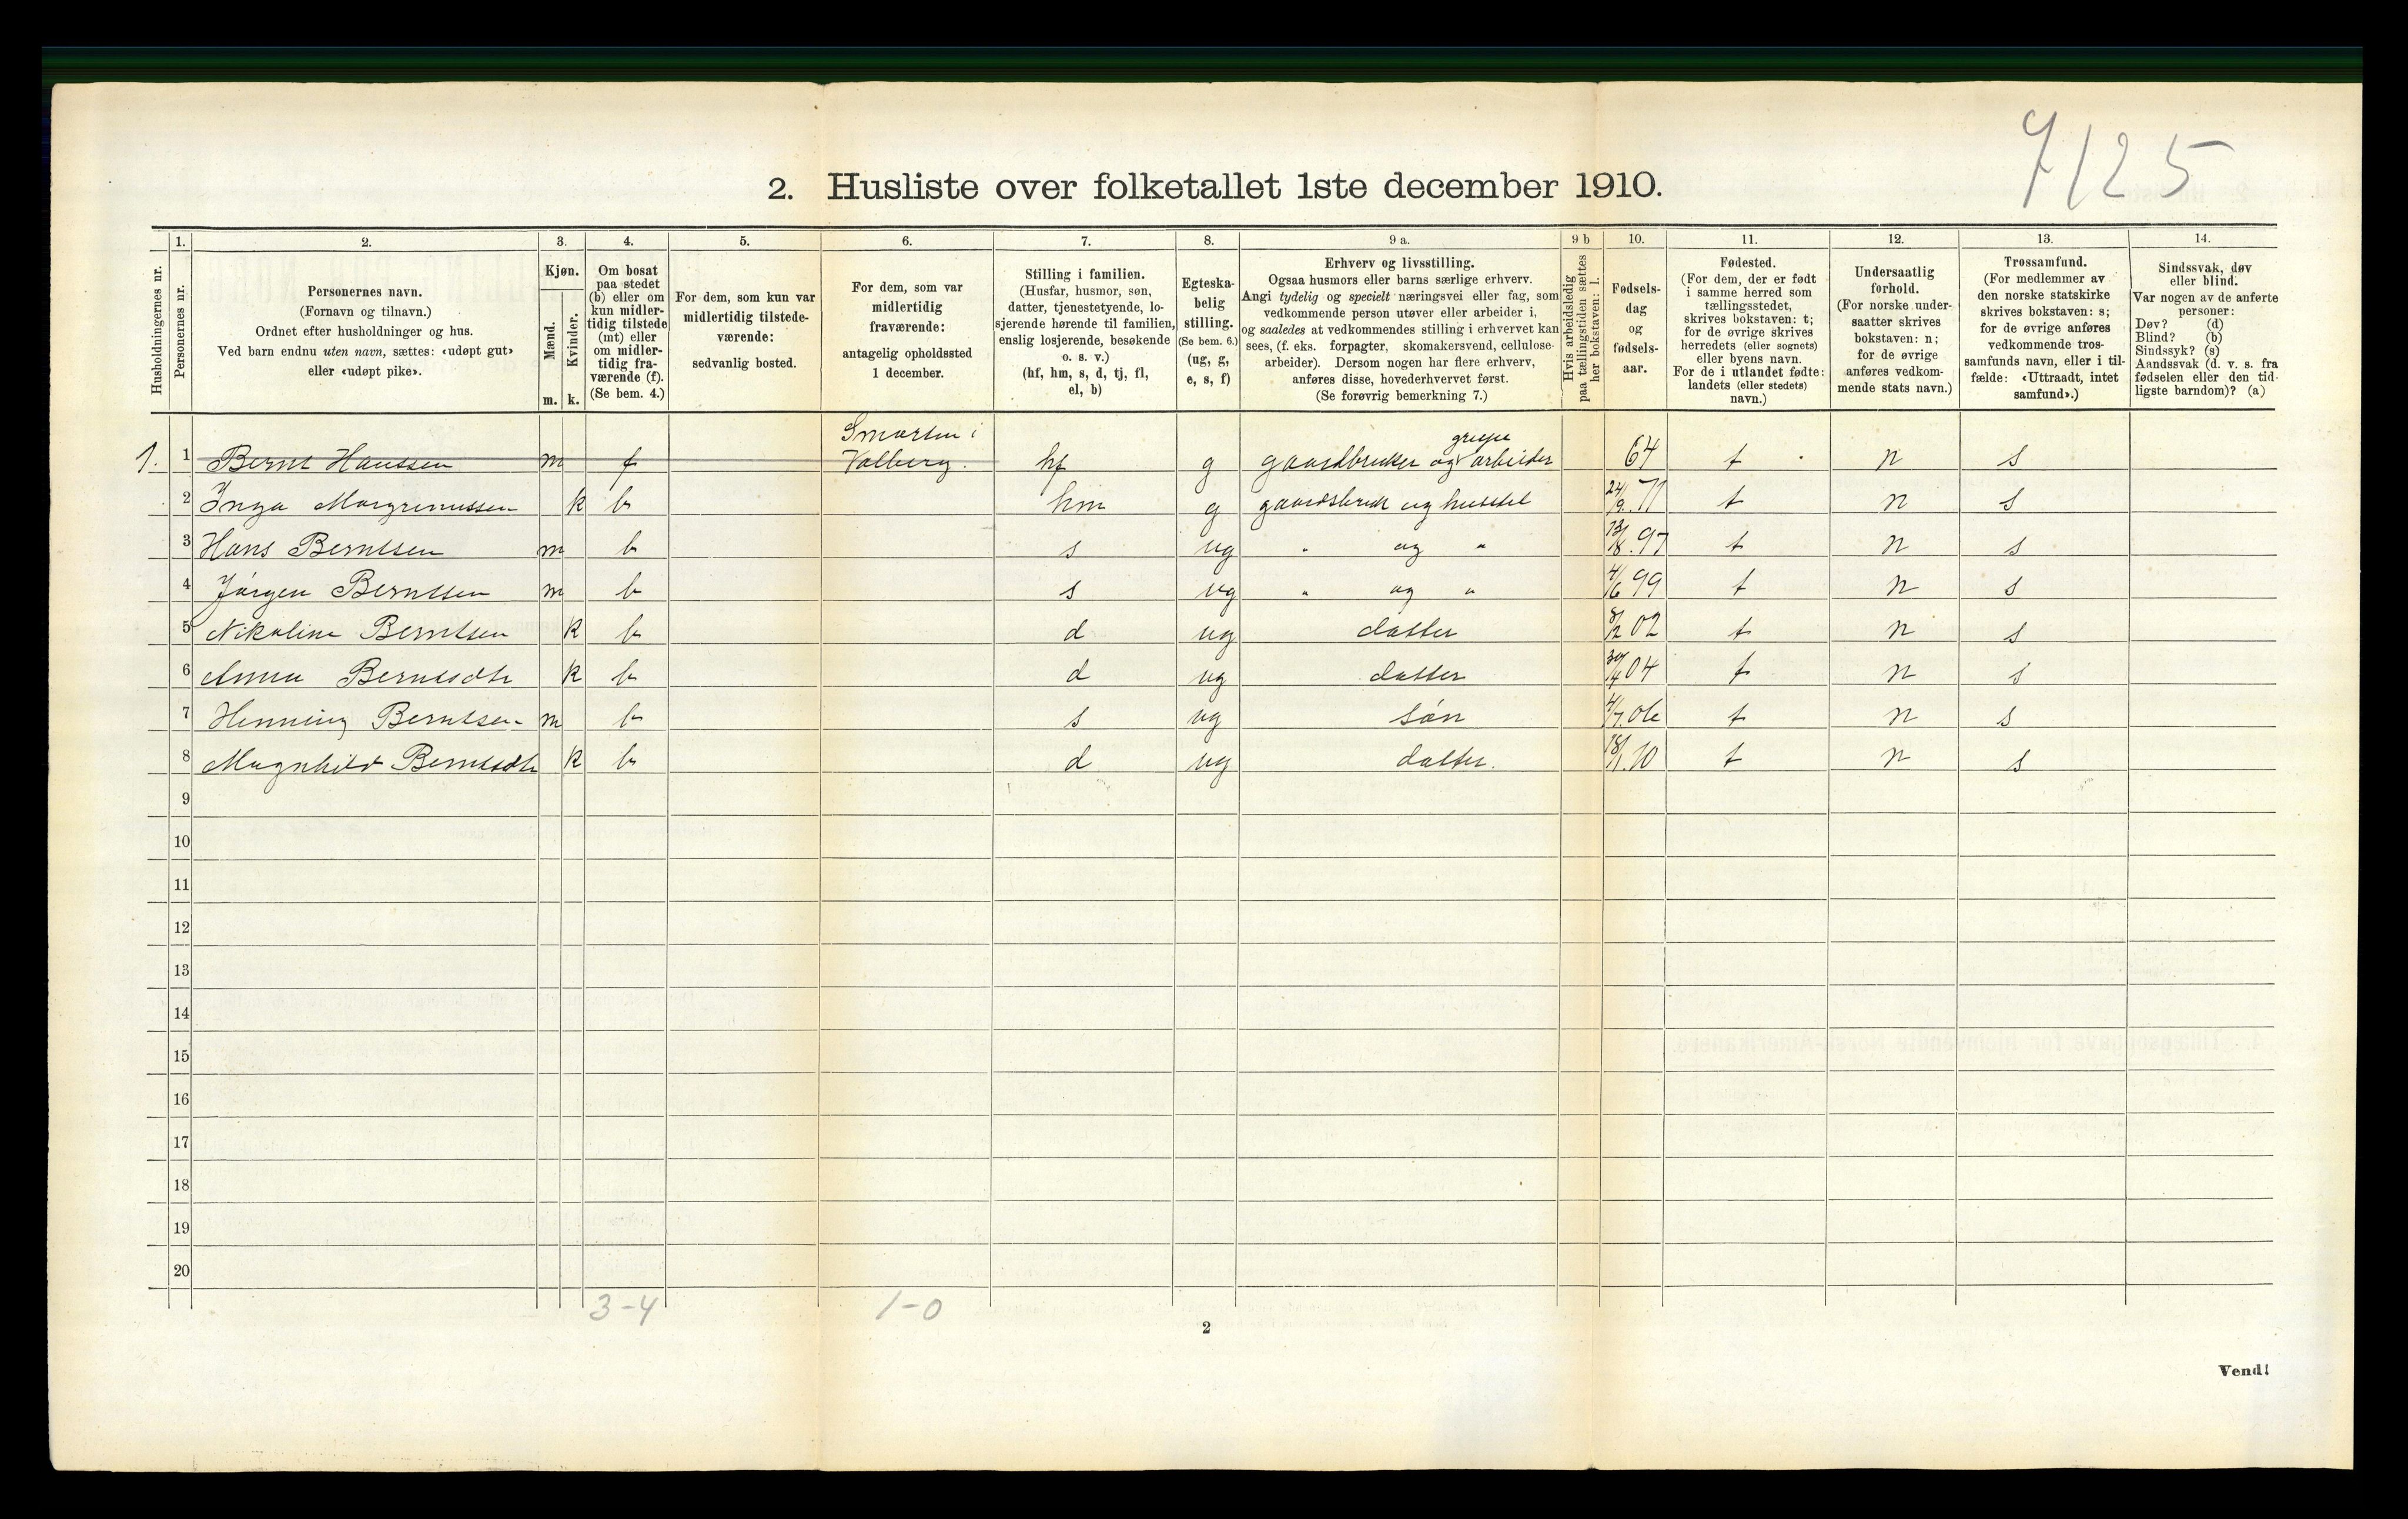 7/25
2. Husliste over folketallet 1ste december 1910.
Husholdningernes nr.
1.
Personernes nr.
2.
Personernes navn.
(Fornavn og tilnavn.)
Ordnet efter husholdninger og hus.
Ved barn endnu uten navn, sættes: «udøpt gut»
eller «udøpt pike».
3.
Kjøn.
Mænd.
Kvinder.
m. k.
4.
Om bosat
paa stedet
(b) eller om
kun midler-
tidig tilstede
(mt) eller
om midler-
tidig fra-
værende (f).
(Se bem. 4.)
5.
For dem, som kun var
midlertidig tilstede-
værende:
sedvanlig bosted.
6.
For dem, som var
midlertidig
fraværende:
antagelig opholdssted
1 december.
7.
Stilling i familien.
(Husfar, husmor, søn,
datter, tjenestetyende, lo-
sjerende hørende til familien,
enslig losjerende, besøkende
o. s. v.)
(hf, hm, s, d, tj, fl,
el, b)
8.
Egteska-
belig
stilling.
(Se bem. 6.)
(ug, g,
e, s, f)
9 a.
Erhverv og livsstilling.
Ogsaa husmors eller barns særlige erhverv.
Angi tydelig og specielt næringsvei eller fag, som
vedkommende person utøver eller arbeider i,
og saaledes at vedkommendes stilling i erhvervet kan
sees, (f. eks. forpagter, skomakersvend, cellulose-
arbeider). Dersom nogen har flere erhverv,
anføres disse, hovederhvervet først.
(Se forøvrig bemerkning 7.)
9 b
Hvis arbeidsledig
paa tællingstiden sættes
her bokstaven: l.
10.
Fødsels-
dag
og
fødsels-
aar.
11.
Fødested.
(For dem, der er født
i samme herred som
tællingsstedet,
skrives bokstaven: t;
for de øvrige skrives
herredets (eller sognets)
eller byens navn.
For de i utlandet fødte:
landets (eller stedets)
navn.)
12.
Undersaatlig
forhold.
(For norske under-
saatter skrives
bokstaven: n;
for de øvrige
anføres vedkom-
mende stats navn.)
13.
Trossamfund.
(For medlemmer av
den norske statskirke
skrives bokstaven: s;
for de øvrige anføres
vedkommende tros-
samfunds navn, eller i til-
fælde: «Uttraadt, intet
samfund».)
14.
Sindssvak, døv
eller blind.
Var nogen av de anførte
personer:
Døv? (d)
Blind? (b)
Sindssyk? (s)
Aandssvak (d. v. s. fra
fødselen eller den tid-
ligste barndom)? (a)
1. 1 Bernt Hanssen m f Valberg. hf g gaardbruker og arbeider 64 t n s
2 Inga k b hm g gaardsbruk og husstel 24/9. 71 t n s
3 Hans Berntsen m b s ug " og " 97 t n s
4 Jørgen Berntsen m b s ug " og " 4/6 99 t n s
5 Nikoline Berntsen k b d ug datter 8/2 02 t n s
6 Anna Berntsdtr k b d ug datter 30/4 04 t n s
7 Henning Berntsen m b s ug søn 4/7. 06 t n s
8 Magnhild Berntsdtr k b d ug datter. 18/1. 10 t n s
9
10
11
12
13
14
15
16
17
18
19
20
3-4 1-0
2
Vend!